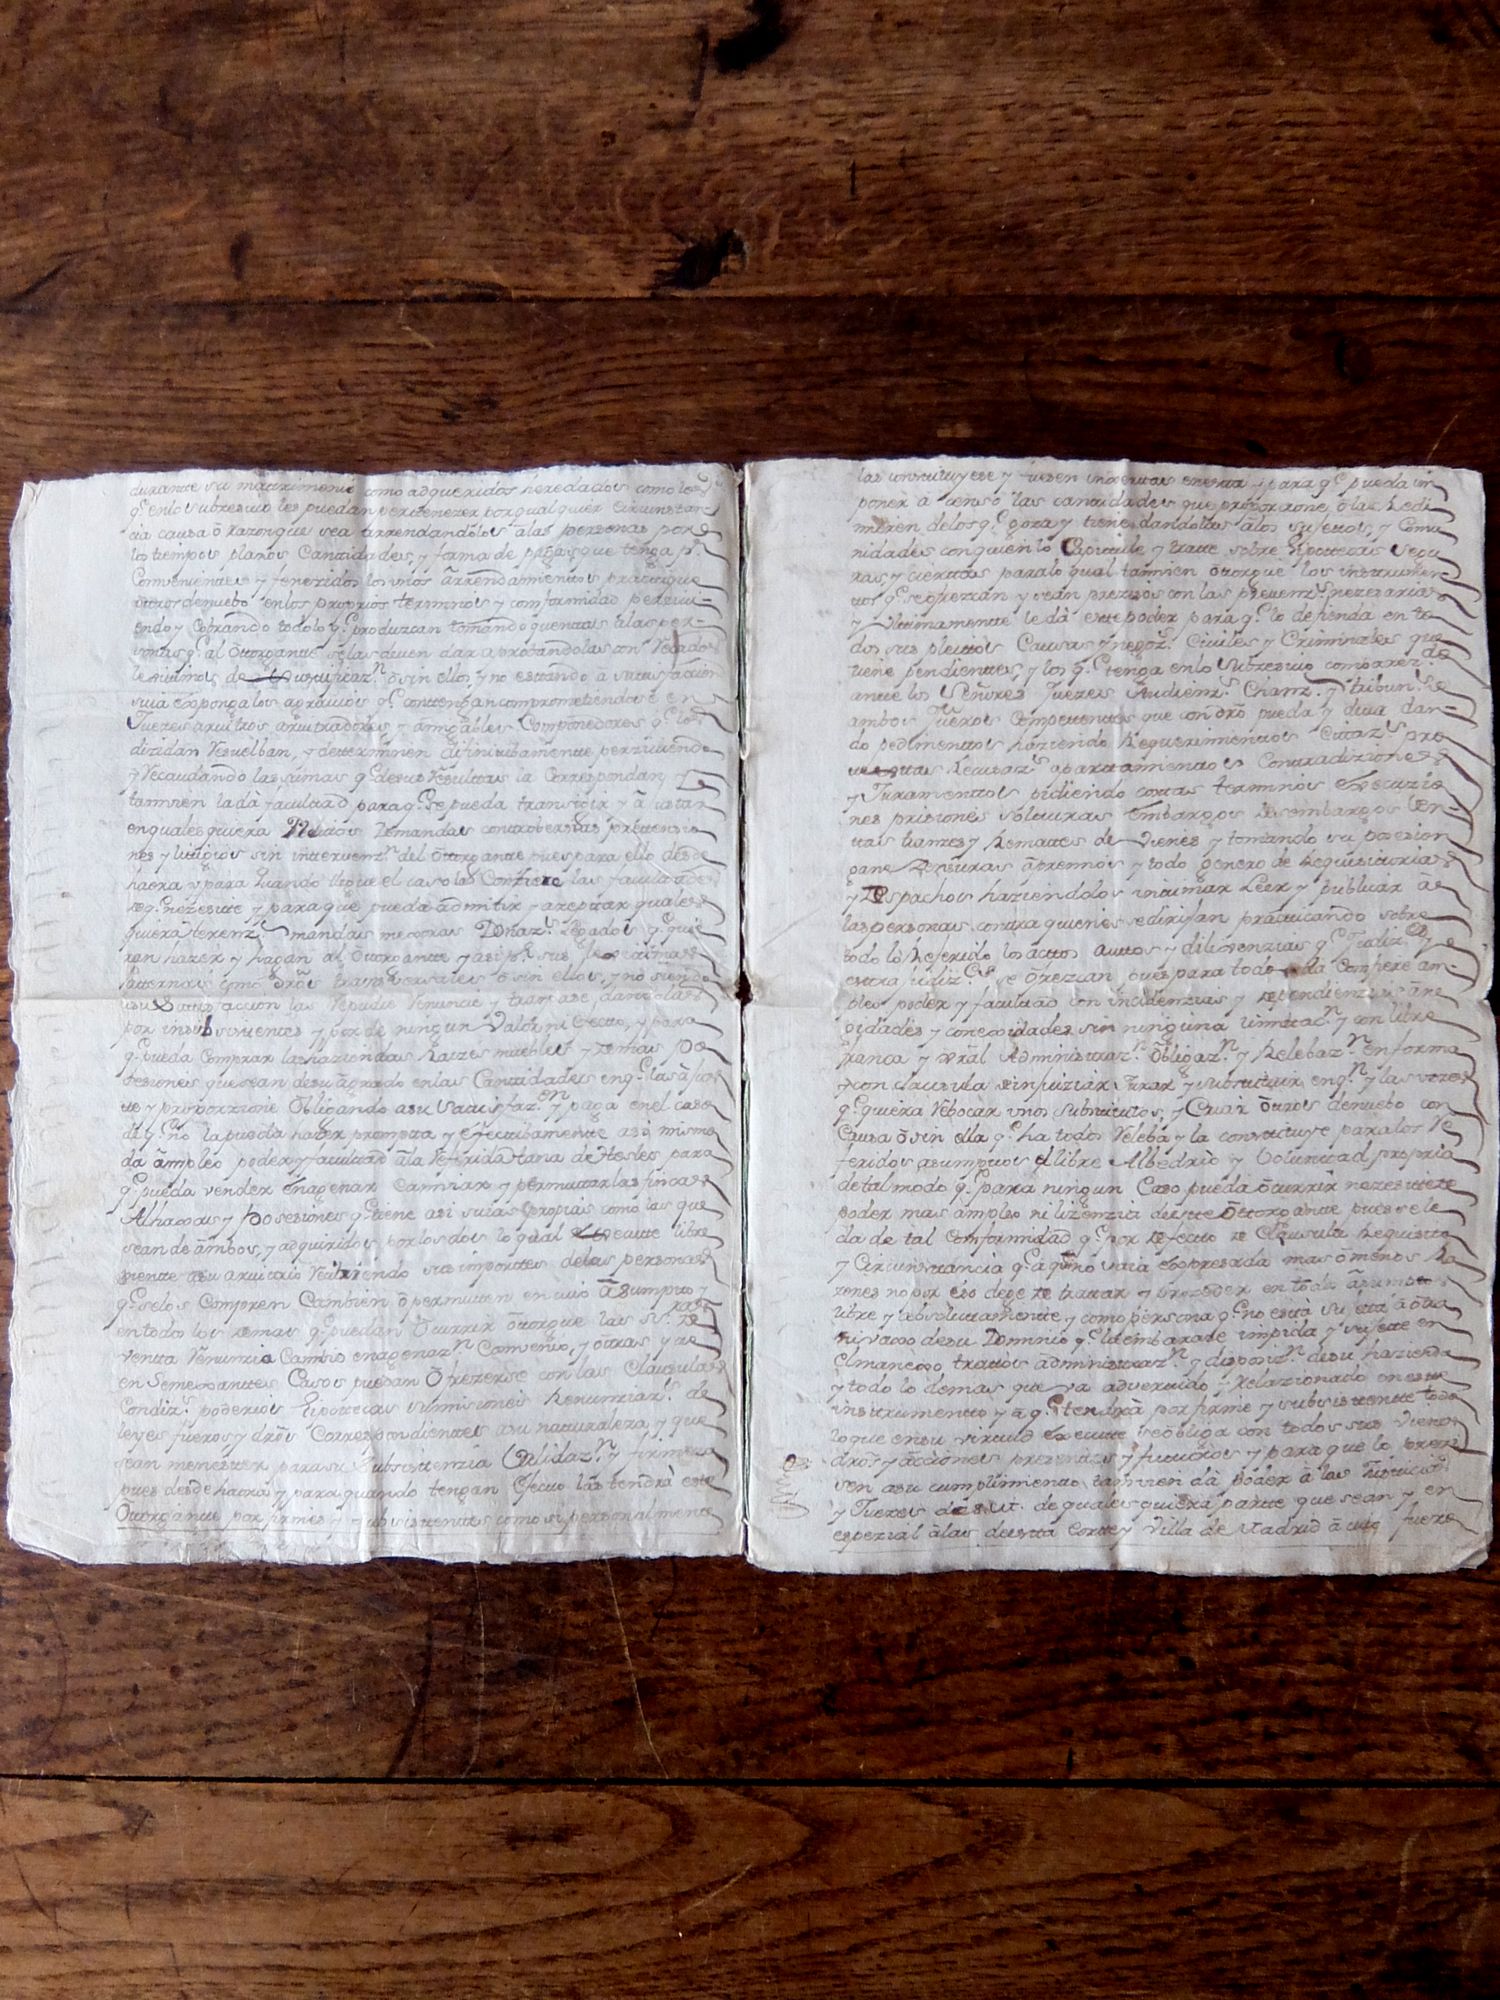 durantte su mattrimonio como adqueridos heredados como los
q.e en lo subzesivo les puedan perttenezer por qual quier Circunstan
cia causa ō razon que sea arrendandolos a las personas por
los tiempos plazos Canttidades, y forma de pagas que tenga p.r
Combenientte y fenezidos los unos ārrendamienttos practtique
ottros de nuebo en los proprios terminos y comformidad perziui-
endo y Cobrando todo lo q.e produzcan tomando quenttas a las per-
sonas q.e al Ottorgantte se las deuen dar aprobandolas con Recados
lexitimos de Justificaz.n ō sin ellos, y no estando a sattisfaccion
suia exponga los agrauios q.e conttengan comprometiendose en
Juezes arbittros arbittradores y amigables Componedores q.e lo
dizidan Resuelban, y detterminen difinitibamentte perziuiendo
y Recaudando las sumas q.e de sus Resulttas la Correspondan, y
tamuien la dà facultad para q.e se pueda transigir y ā
en quales quiera Pleittos Demandas conttrobersias prettensio
nes y litigios sin intterbenz.n del ōttorgantte pues para ello desde
haora y para quando llegue el caso la Confiere las facultade
s q.e nezesitte y para que pueda ādmitir y azeptar quales
quiera herenz.s mandas Donaz.s Legados q.e quie
ran hazer y hagan al Ottorgantte y asi p.r sus lexitimas
Patternas como ōttros trasbersales ō sin ellos, y no siendo
a su sattisfaccion las Repudie Renuncie y traspase dandolas
por insubsistenttes y por de ningun Valor ni efectto, y para
q.e pueda Comprar las haziendas Raizes muebles y demas po
sesiones que sean de su āgrado en las Canttidades en q.e las
te y proporzione Obligando a su sattisfaz.on y paga en el caso
de q.e no la pueda hazer prompta y efecttibamentte asi mismo
da āmpleo poder y facultad ā la Referida para
q.e pueda vender enagenar Cambiar y permuttar las fincas
Alhaxas y Posesiones q.e tiene asi suias propias como las que
sean de āmbos, y adquiridos por los dos lo qual execute libre
mentte a su arbitrio Reziuiendo sus importtes de las personas
q.e se los Compren Cambien ō permutten en cuio āsumptto y
en todos los demas q.e puedan Ocurrir ottorgue las de
ventta Renunzia Cambio enagenaz.n Combenio, y ōttras, y que
en semejanttes Casos puedan Ofrezerse con las Clausulas
Condiz.s poderios Ypottecas sumisiones Renunziaz.s de
leyes fueros y dr̃os Correspondienttes a su naturaleza y que
sean menestter para su subsisttenzia balidaz.n y firmeza
pues desde haora y para quando tengan efectto las tendrà estte
Ottorgantte por firmes y subsisttenttes como si personalmentte
las consttituyese y fuesen insertas en esta y para q.e pueda im
poner à censo las canttidades que proporzione, ō las Redi
mieren de los q.e goza y tiene dandolas ā los sujettos, y Comu
nidades con quien lo Capittule y tratte sobre Ypottecas segu
ras, y ciertas para lo qual tamuien ōttorgue los insttrumen
ttos q.e se ofrezcan y sean prezisos con las preuenz.s nezesarias
y Ulttimamentte le dà estte poder para q.e lo defienda en to
dos sus pleittos Causas y negoz.s Ciuiles y Criminales que
tiene pendienttes, y los q.e tenga en lo subzesiuo
antte los Señores Juezes Audienz.s Chanz.s y tribun.s de
ambos fueros Competenttes que con dr̃o pueda y deua dan-
do pedimenttos haziendo Requerimienttos Cittaz.s pro
ttesttas Recusaz.s aparttamienttos Conttradiziones
y Juramenttos pidiendo costtas terminos execuzio
nes prisiones solturas embargos desembargos Ven-
ttas tranzes y Remattes de Vienes y tomando su posesion
gane Zensuras āpremios y todo genero de Requisitorias
y Despachos haziendolos inttimar Leer y publicar ā
las personas conttra quienes se dirijan practticando sobre
todo lo Referido los acttos auttos y diligenzias q.e Judiz.l y
esttrajudiz.l se ofrezcan pues para todo la Comfiere am-
pleo poder y facultad con incidenzias y dependienzias āne
xidades y conexidades sin ninguna limitaz.n y con libre
franca y gr̃al Administtraz.n Obligaz.n y Relebaz.n en forma
y con clausula de enjuiziar Jurar y substtittuir en q.n y las vezes
q.e quiera Rebocar unos substtituttos, y Criar ōttros de nuebo con
Causa ō sin ella q.e ha todos Releba y la consttittuye para los Re
feridos asumpttos libre Albedrio y Voluntad propria
de tal modo q.e para ningun Caso pueda ōcurrir nezesitte
poder mas āmpleo ni lizenzia de estte Ottorgantte pues se le
da de tal Comformidad q.e por defectto de Clausula Requisitto
y Circunsttancia q.e aqui no vaia expresada mas ō menos Ra
zones no por eso deje de trattar y prozeder en todos asumpttos
libre y absoluttamentte y como persona q.e no estta sujetta ā ōtra
ni vaxo de su Dominio q.e la embaraze impida y sujette en
el manèxo trattos administtraz.n y disposiz.n de su hazienda
y todo lo demas que va aduerttido y Relazionado en estte
insttrumentto y à q.e tendrà por firme y subsisttentte todo
lo que en su virtud execute se obliga con todos sus Vienes
dr̃os y acciones presenttes y futturos y para que lo prezi
sen a su cumplimientto tamuien dà poder à las Justticias
y Juezes de S.M. de quales quiera partte que sean y en
espezial à las de estta Cortte y Villa de Madrid ā cuio fuero